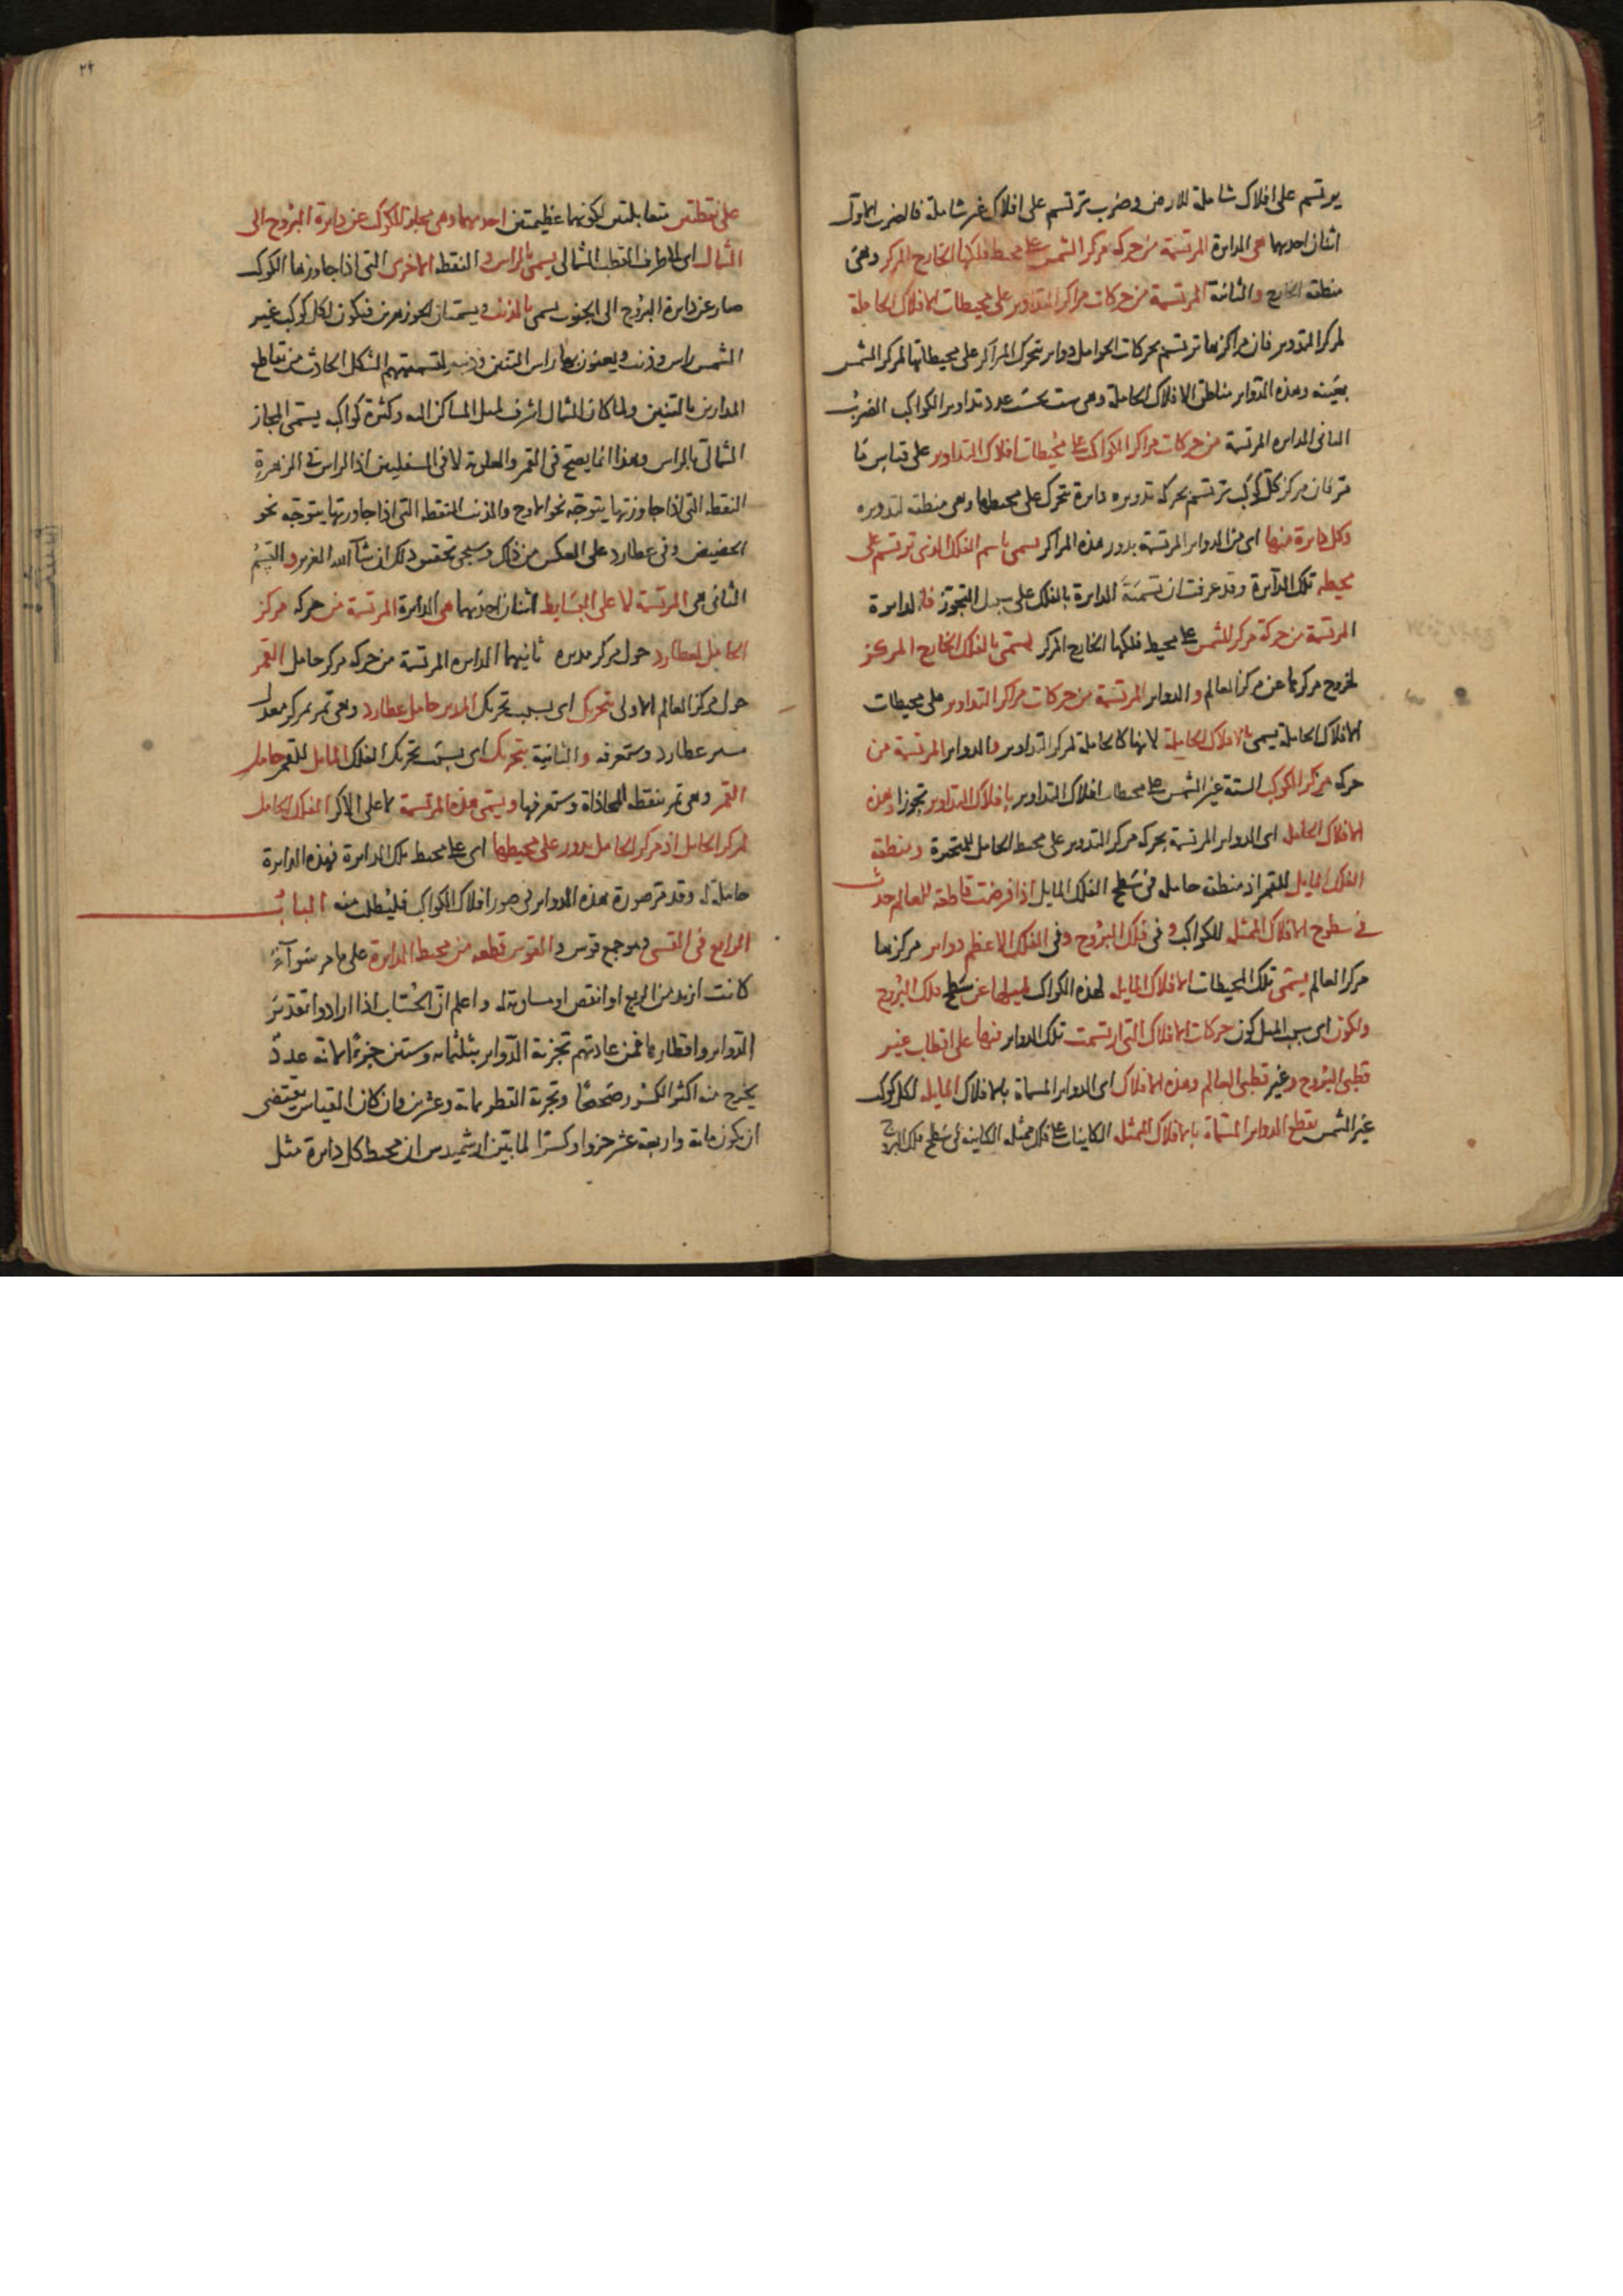 يرتسم على افلاك شاملة للارض وضرب ترتسم على افلاك غير شاملة فالضرب الاول
اثنان احديهما هى الدايرة المرتسمة من حركة مركز الشمس على محيط فلكها الخارج المركز وهى
منطقة الخارج والثانية المرتسمة من حركات مراكز التداوير على محيطات الافلاك الحاملة
لمركز التدوير فان مراكزها ترتسم بحركات الحوامل دواير تتحرك المراكز على محيطاتها لمركز الشمس
بعينه وهذه الدواير مناطق الافلاك الحاملة وهى ست بحسب عدد تداوير الكواكب الضرب
الثانى الدايرة المرتسمة من حركات مراكز الكواكب على محيطات افلاك التداوير على قياس ما
مر فان مركز كل كوكب ترتسم بحركة تدويره دايرة تتحرك على محيطها وهى منطقة تدويره
وكل دايرة منها اى من الدواير المرتسمة بدور هذه المراكز يسمى باسم الفلك الذى ترتسم على
محيطه تلك الدآيرة وقد عرفت ان تسمية الدايرة بالفلك على سبيل التجوز فالدايرة
المرتسمة من حركة مركز الشمس على محيط فلكها الخارج المركز يسمى بالفلك الخارج المركز
لخروج مركزها عن مركز العالم والدواير المرتسمة من حركات مراكز التداوير على محيطات
الافلاك الحاملة يسمى بالافلاك الحاملة لانها كالحاملة لمركز التداوير والدواير المرتسمة من
حركة مركز الكوكب الستة غير الشمس على محيطات افلاك التداوير بافلاك التداوير تجوزا وهذه
الافلاك الحامل اى الدواير المرتسمة بحركة مركز التدوير على محيط الحامل للمتحيرة ومنطقة
الفلك المايل للقمر اذ منطقة حامله فى سطح الفلك المايل اذا فرضت قاطعة للعالم حدث
فى سطوح الافلاك الممثلة للكواكب وفى فلك البروج وفى الفلك الاعظم دواير مركزها
مركز العالم يسمى تلك المحيطات الافلاك المايلة لهذه الكواكب لميلها عن سطح فلك البروج
ولكون اى بسبب الميل كون حركات الافلاك التى ارتسمت تلك الدواير منها على اقطاب غير
قطبى البروج وغير قطبى العالم وهذه الافلاك اى الدواير المسماة بالافلاك المايلة لكل كوكب
غير الشمس تقطع الدواير المسماة بالافلاك الممثلة الكاينات على فلك ممثله الكاينة فى سطح فلك البروج
٢۴
على نقطتين متقابلتين لكونهما عظيمتين احديهما وهى مجاز الكوكب عن دايرة البروج الى
الشمال اى الى طرف القطب الشمالى يسمى بالراس والنقطة الاخرى التى اذا جاوزها الكوكب
صار عن دايرة البروج الى الجنوب يسمى بالذنب ويسميان الجوزهرين فيكون لكل كوكب غير
الشمس راس وذنب ويعنون بهما راس التنين وذنبه لتسميتهم الشكل الحادث من تقاطع
المدارين بالتنين ولما كان الشمال اشرف لميل المساكن اليه وكثرة كواكبه يسمى المجاز
الشمالى بالراس وهذا انما يصح فى القمر والعلوية لا فى السفليين اذ الراس فى الزهرة
النقطة التى اذا جاوزتها يتوجه نحو الاوج والذنب النقطة التى اذا جاوزتها يتوجه نحو
الحضيض وفى عطارد على العكس من ذلك وسيجى تحقيق ذلك ان شآ الله العزيز والقسم
الثانى هى المرتسمة لا على البسايط اثنان احديهما هى الدايرة المرتسمة من حركة مركز
الحامل لعطارد حول مركز مديره ثانيهما الدايرة المرتسمة من حركة مركز حامل القمر
حول مركز العالم الاولى بتحريك اى بسبب تحريك المدير حامل عطارد وهى تمر بمركز معدل
مسير عطارد وستعرفه والثانية بتحريك اى بسبب تحريك الفلك المايل للقمر حامل
القمر وهى تمر بنقطة المحاذاة وستعرفها ويسمى هذه المرتسمة لا على الاكر الفلك الحامل
لمركز الحامل اذ مركز الحامل يدور على محيطها اى على محيط تلك الدايرة فهذه الدايرة
حاملة له وقد مر صورة هذه الدواير فى صور افلاك الكواكب فليطلب منه الباب
الرابع فى القسى وهو جمع قوس والقوس قطعة من محيط الدايرة على ما مر سوآء
كانت ازيد من الربع او انقص او مساوية له واعلم ان الحساب اذا ارادوا تقدير
الدواير واقطارها فمن عادتهم تجزية الدواير بثلثماية وستين جزءا لانه عدد
يخرج منه اكثر الكسور صحيحا وتجزية القطر بماية وعشرين وان كان القياس يقتضى
ان يكون ماية واربعة عشر جزوا وكسرا لما بين ارشميدس ان محيط كل دايرة مثل